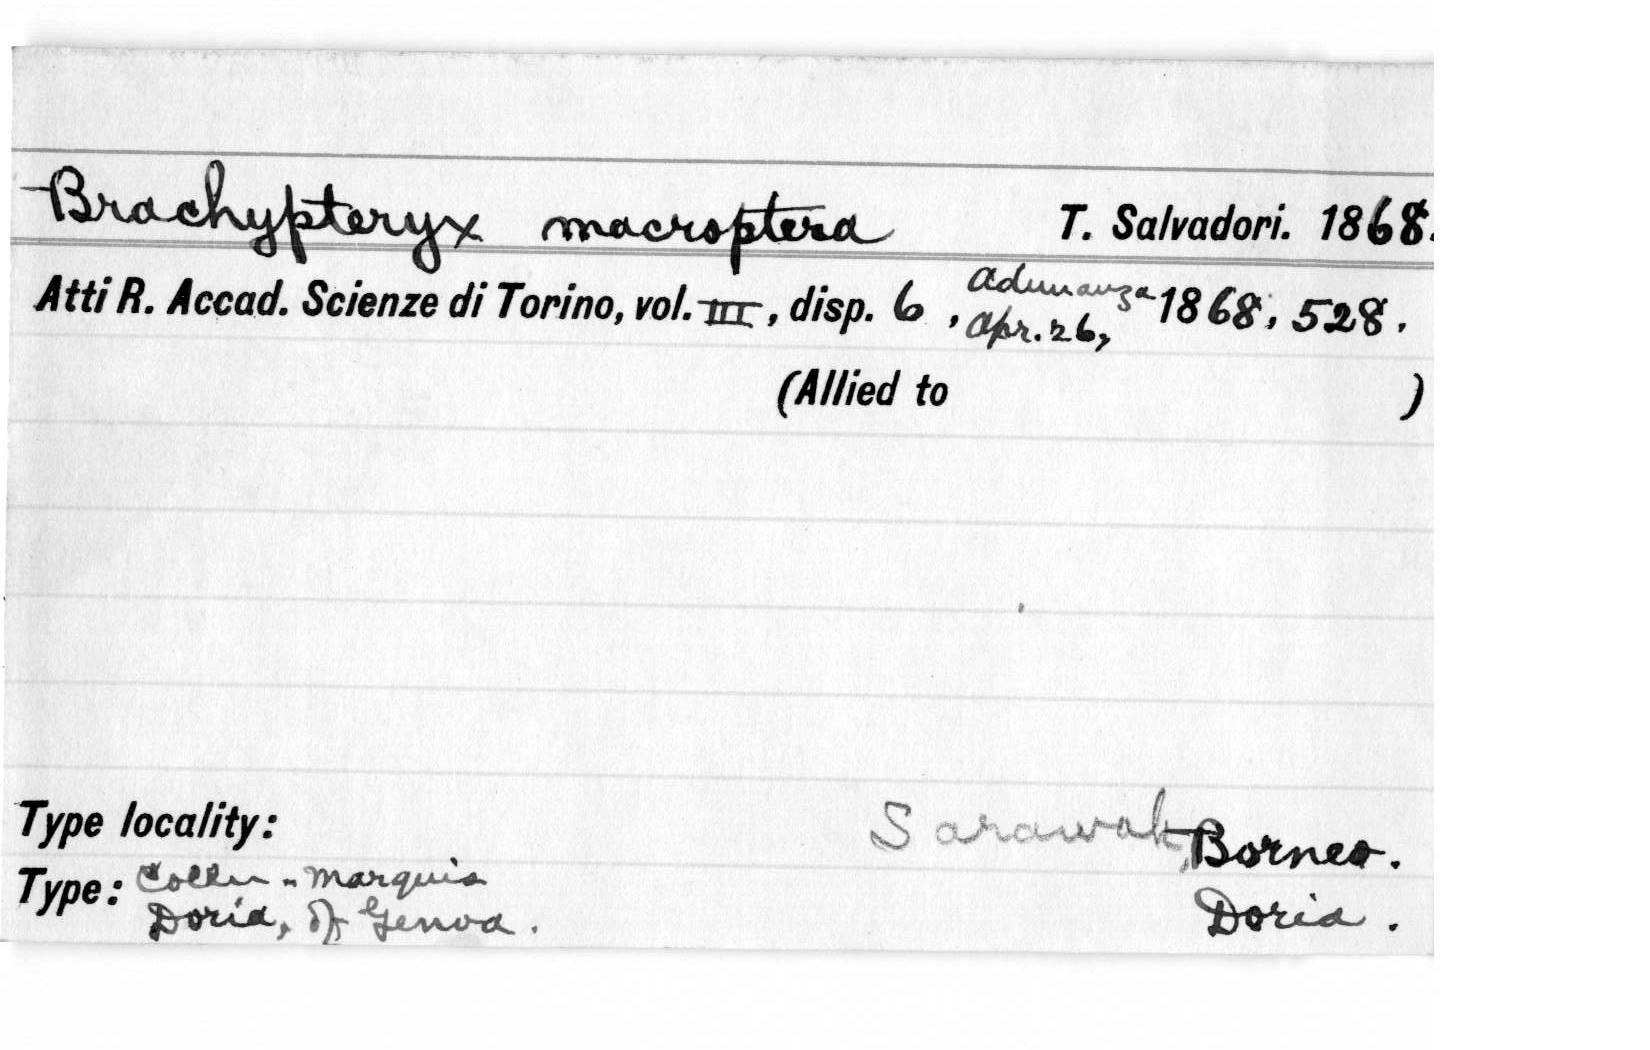 Brachypteryx macroptera T. Salvadori. 1868.
Atti R. Accad. Scienze di Torino, vol. III, disp. 6, Adunanza Apr. 26, 1868, 528.
(Allied to )
Type locality: Sarawak, Borneo.
Type: Colln. Marquis Doria.
Doria, of Genoa.